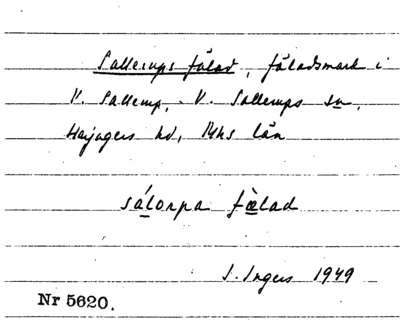 Sallerups fälad, fäladsmark i
V. Sallerup, V. Sallerups sn,
Harjagers hd, Mhs län
sálorpa fælad
I. Ingers 1949
Nr 5620.